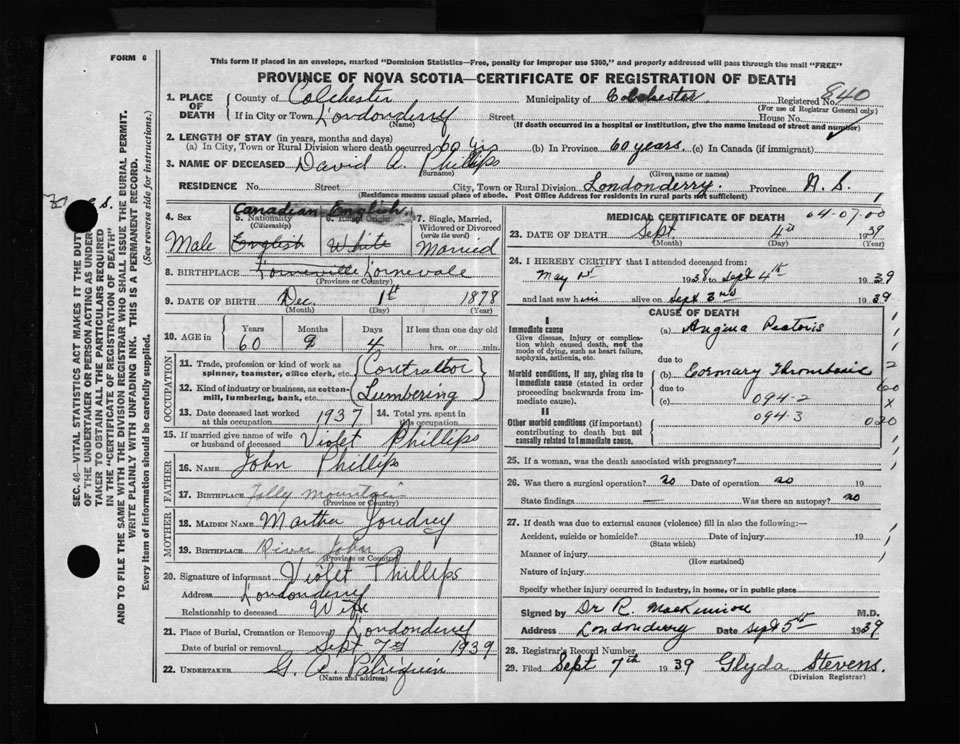 FORM 6
This form if placed in an envelope, marked "Dominion Statistics—Free, penalty for improper use $300," and properly addressed will pass through the mail "FREE"
PROVINCE OF NOVA SCOTIA—CERTIFICATE OF REGISTRATION OF DEATH
1. PLACE OF DEATH County of Colchester Municipality of Colchester Registered No. 840
(For use of Registrar General only)
If in City or Town Londonderry (Name) Street House No.
(If death occurred in a hospital or institution, give the name instead of street and number)
2. LENGTH OF STAY (in years, months and days)
(a) In City, Town or Rural Division where death occurred 60 yrs (b) In Province 60 years. (c) In Canada (if immigrant)
3. NAME OF DECEASED David A. Phillips
(Surname) (Given name or names)
RESIDENCE No. Street City, Town or Rural Division Londonderry. Province N. S.
(Residence means usual place of abode. Post Office Address for residents in rural parts not sufficient)
SEC. 46—VITAL STATISTICS ACT MAKES IT THE DUTY
OF THE UNDERTAKER OR PERSON ACTING AS UNDER-
TAKER TO OBTAIN ALL THE PARTICULARS REQUIRED
IN THE "CERTIFICATE OF REGISTRATION OF DEATH"
AND TO FILE THE SAME WITH THE DIVISION REGISTRAR WHO SHALL ISSUE THE BURIAL PERMIT.
WRITE PLAINLY WITH UNFADING INK. THIS IS A PERMANENT RECORD.
Every item of information should be carefully supplied. (See reverse side for instructions.)
Canadian English
4. Sex 5. Nationality (Citizenship) 6. Racial Origin 7. Single, Married, Widowed or Divorced (write the word)
Male English White Married
8. BIRTHPLACE Lornevale
(Province or Country)
9. DATE OF BIRTH Dec. 1st 1878
(Month) (Day) (Year)
10. AGE in Years Months Days If less than one day old
60 9 4 hrs. or min.
OCCUPATION
11. Trade, profession or kind of work as spinner, teamster, office clerk, etc. Contractor
12. Kind of industry or business, as cotton-mill, lumbering, bank, etc. Lumbering
13. Date deceased last worked at this occupation 1937 14. Total yrs. spent in this occupation
15. If married give name of wife or husband of deceased Violet Phillips
FATHER
16. NAME John Phillips
17. BIRTHPLACE Mountain
(Province or Country)
MOTHER
18. MAIDEN NAME Martha
19. BIRTHPLACE River John
(Province or Country)
20. Signature of informant Violet Phillips
Address Londonderry
Relationship to deceased Wife
21. Place of Burial, Cremation or Removal Londonderry
Date of burial or removal Sept 7th 1939
22. UNDERTAKER G. A.
(Name and address)
MEDICAL CERTIFICATE OF DEATH 64-07-00
23. DATE OF DEATH Sept 4th 1939
(Month) (Day) (Year)
24. I HEREBY CERTIFY that I attended deceased from:
May 1st 1938 to Sept 4th 1939
and last saw him alive on Sept 3rd 1939
CAUSE OF DEATH
I
Immediate cause
Give disease, injury or complication which caused death, not the mode of dying, such as heart failure, asphyxia, asthenia, etc.
(a) Angina Pectoris
due to
Morbid conditions, if any, giving rise to immediate cause (stated in order proceeding backwards from immediate cause).
(b) Coronary Thrombosis 2
due to 60
(c) 094-2 X
II
Other morbid conditions (if important) contributing to death but not causally related to immediate cause.
094-3 020
25. If a woman, was the death associated with pregnancy?
26. Was there a surgical operation? no Date of operation no 19
State findings — Was there an autopsy? no
27. If death was due to external causes (violence) fill in also the following:—
Accident, suicide or homicide? Date of injury 19
(State which)
Manner of injury
(How sustained)
Nature of injury
Specify whether injury occurred in industry, in home, or in public place
Signed by Dr R. MacKinnon M.D.
Address Londonderry Date Sept 5th 1939
28. Registrar's Record Number
29. Filed Sept 7th 1939 Glyda Stevens.
(Division Registrar)